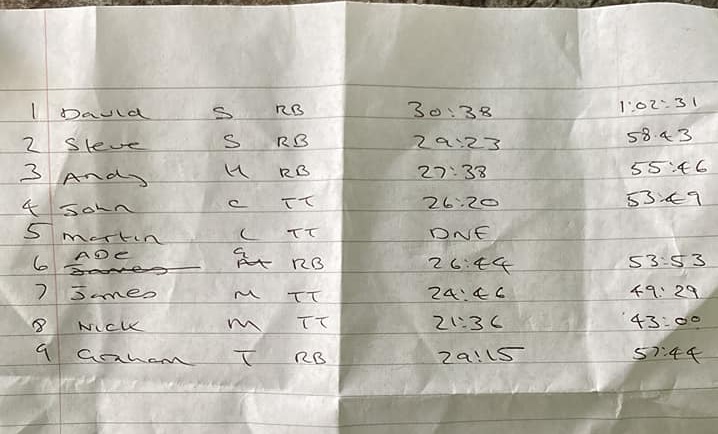 1 David S RB 30:38 1:02:31
2 Steve S RB 29:23 58:43
3 Andy H RB 27:38 55:46
4 John C TT 26:20 53:49
5 Martin C TT DNF
6 ADE G RB 26:44 53:53
7 James M TT 24:46 49:29
8 Nick M TT 21:36 43:00
9 Graham T RB 29:15 57:44